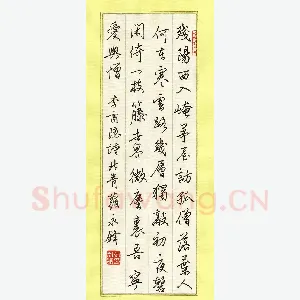 殘陽西入崦茅屋訪孤僧落葉人
何在寒雲路幾層獨敲初夜磬
閑倚一枝籐世界微塵裏吾寧
愛與僧 李商隱詩北青蘿永鋒
Shufawang.CN